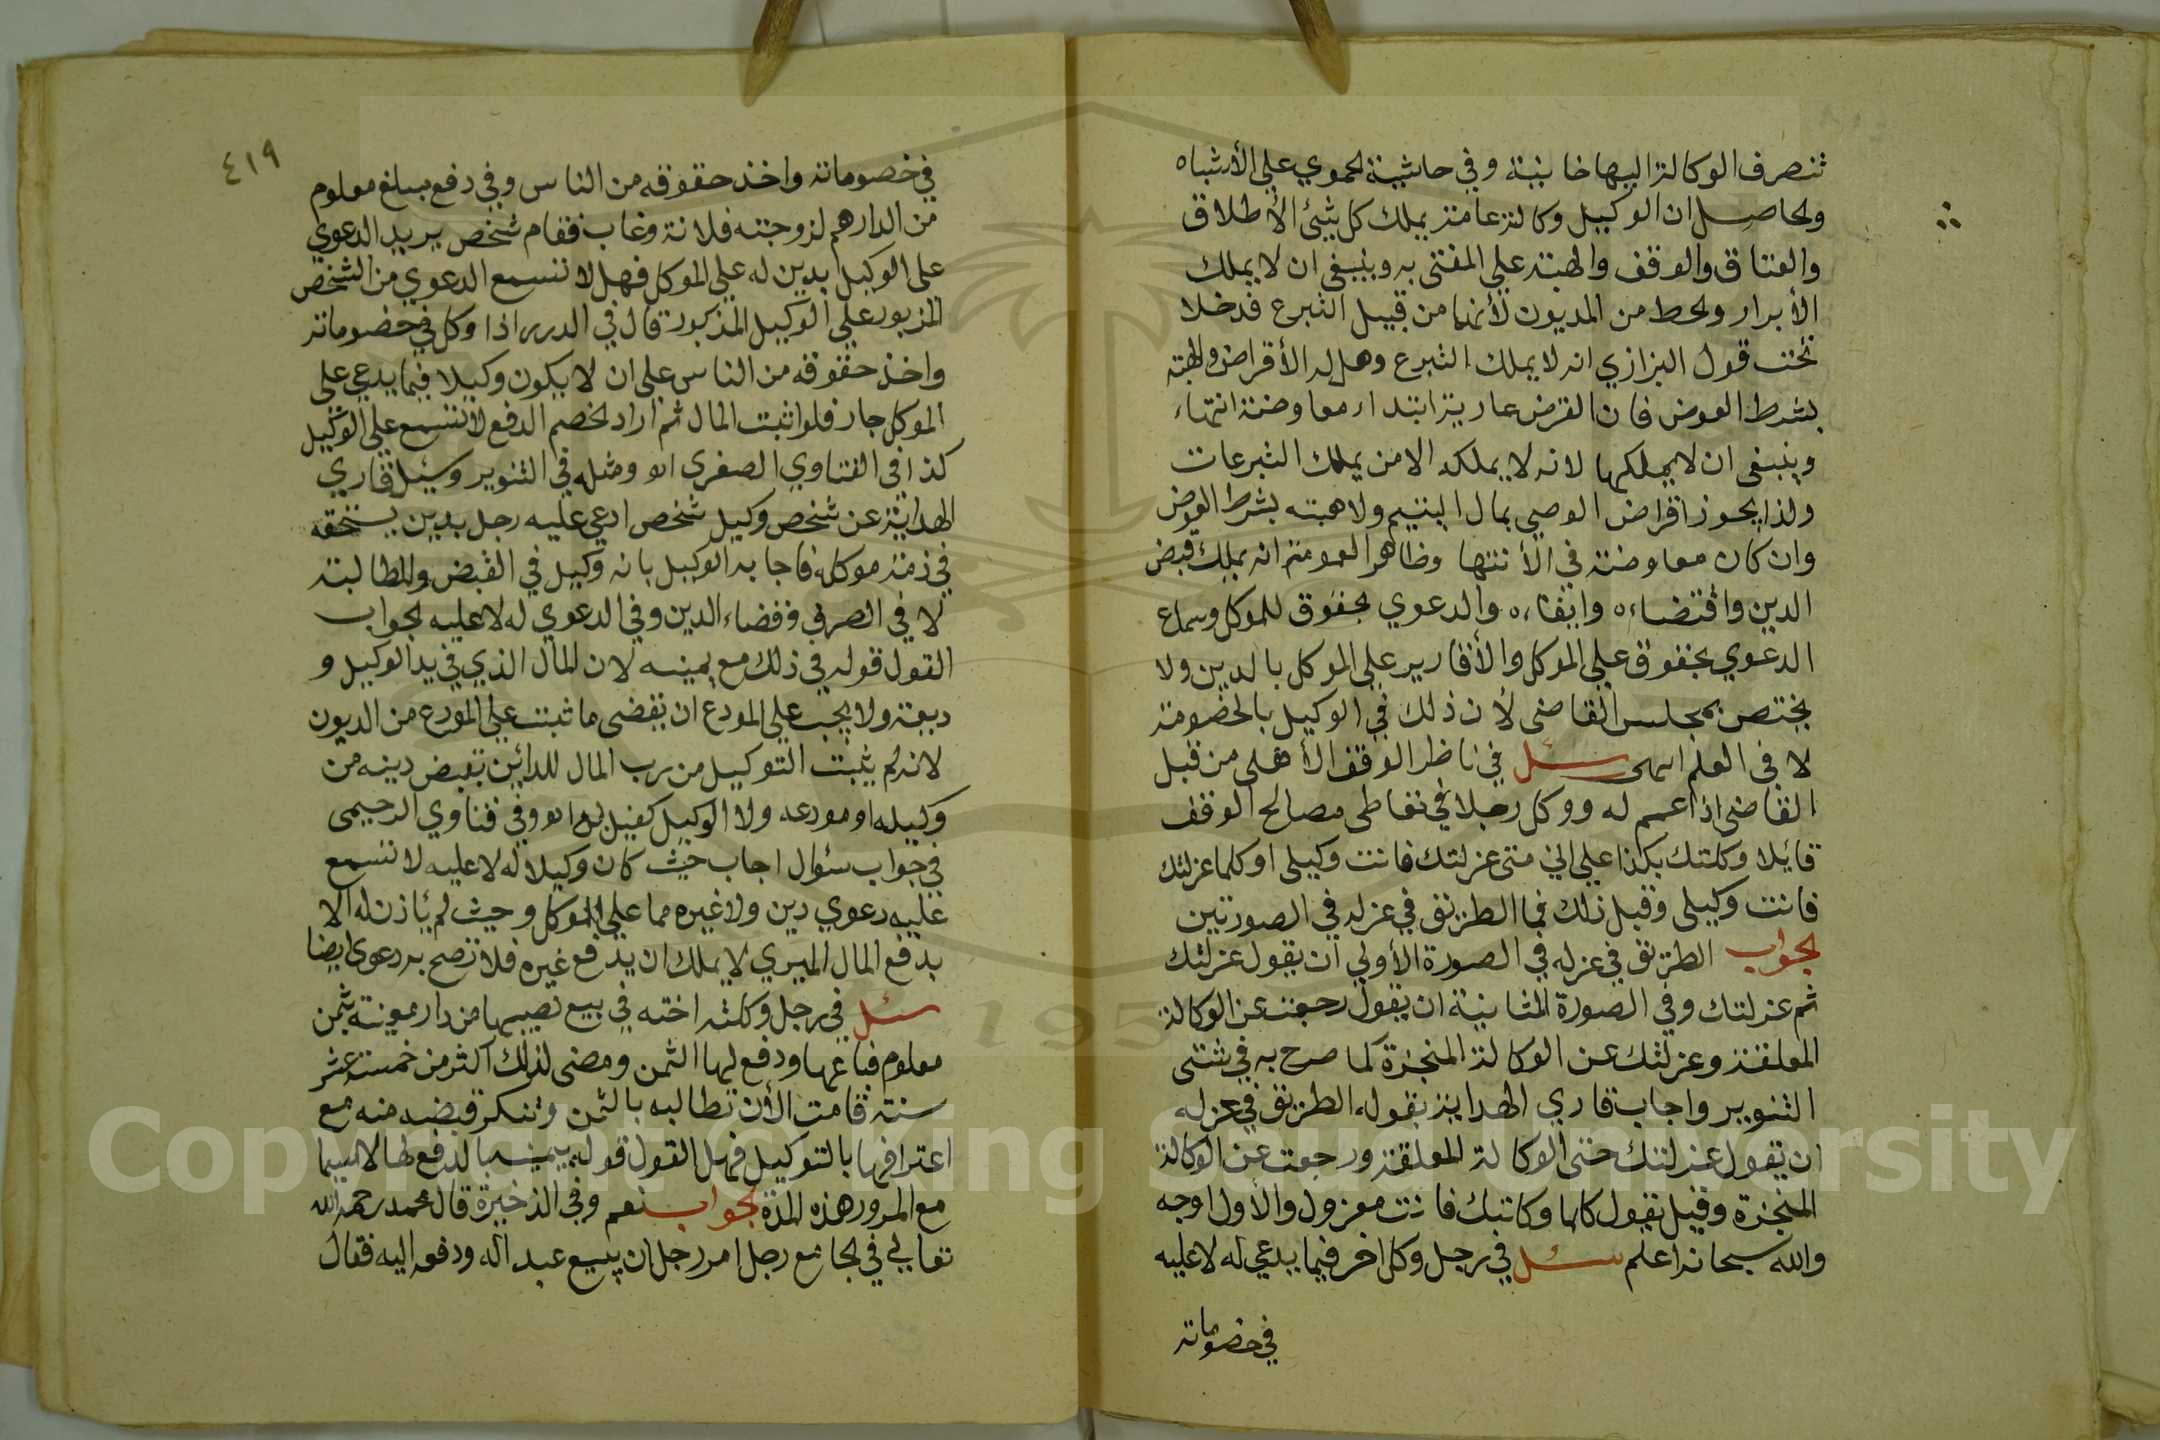 تنصرف الوكالة اليها خانية وفي حاشية الحموي علي الأشباه
والحاصل ان الوكيل وكالة عامة يملك كل شيئ الأ طلاق
والعتاق والوقف والهبة علي المفتي به وينبغي ان لا يملك
الأبرار والحط من المديون لأنهما من قبيل التبرع فدخلا
تحت قول البزازي انه لا يملك التبرع وهل له الأقراض والهبة
بشرط العوض فان القرض عارية ابتداء معاوضة انتهاء
وينبغي ان لا يملكها لانه لا يملكه الا من يملك التبرعات
ولذا يجوز اقراض الوصي بمال اليتيم ولا هبته بشرط العوض
وان كان معاوضة في الأنتها وظاهر العمومة انه يملك قبض
الدين واقتضاءه وايفاءه والدعوي بحقوق للموكل وسماع
الدعوي بحقوق علي الموكل والأقارير علي الموكل بالدين ولا
يختص بمجلس القاضي لأن ذلك في الوكيل بالخصومة
لا في العلم انتهي سئل في ناظر الوقف الأهلي من قبل
القاضي اذا عمم له ووكل رجلا في تعاطي مصالح الوقف
قائلا وكلتك بكذا علي اني متي عزلتك فانت وكيلي او كلما عزلتك
فانت وكيلي وقبل ذلك فما الطريق في عزله في الصورتين
الجواب الطريق في عزله في الصورة الأولي ان يقول عزلتك
ثم عزلتك وفي الصورة الثانية ان يقول رجعت عن الوكالة
المعلقة وعزلتك عن الوكالة المنجزة كما صرح به في شتي
التنوير واجاب قاري الهداية بقوله الطريق في عزله
ان يقول عزلتك حتي الوكالة المعلقة ورجعت عن الوكالة
المنجزة وقيل يقول كلما وكلتك فانت معزول والأول اوجه
والله سبحانه اعلم سئل في رجل وكل اخر فيما يدعي له لا عليه
في خصوماته
٤١٩
في خصوماته واخذ حقوقه من الناس وفي دفع مبلغ معلوم
من الدارهم لزوجته فلانة وغاب فقام شخص يريد الدعوي
علي الوكيل بدين له علي الموكل فهل لا تسمع الدعوي من الشخص
المزبور علي الوكيل المذكور قال في الدرر اذا وكل في خصوماته
واخذ حقوقه من الناس علي ان لا يكون وكيلا فيما يدعي علي
الموكل جاز فلو اثبت المال ثم اراد الخصم الدفع لا تسمع علي الوكيل
كذا في الفتاوي الصغري اه ومثله في التنوير وسئل قاري
الهداية عن شخص وكيل شخص ادعي عليه رجل بدين يستحقه
في ذمة موكله فاجابه الوكيل بانه وكيل في القبض والمطالبة
لا في الصرف وقضاء الدين وفي الدعوي له لا عليه الجواب
القول قوله في ذلك مع يمينه لان المال الذي في يد الوكيل و
ديعة ولا يجب علي المودع ان يقضي ما ثبت علي المودع من الديون
لانه لم يثبت التوكيل من رب المال للدائن بقبض دينه من
وكيله او مودعه ولا الوكيل كفيل له اه وفي فتاوي الرحيمي
في جواب سئوال اجاب حيث كان وكيلا له لا عليه لا تسمع
عليه دعوي دين ولا غيره مما علي الموكل وحيث لم يأذن له الا
بدفع المال الميري لا يملك ان يدفع غيره فلا تصح به دعوي ايضا
سئل في رجل وكلته اخته في بيع نصيبها من دار معينة بثمن
معلوم فباعها ودفع لها الثمن ومضي لذلك اكثر من خمسة عشر
سنة قامت الأن تطالبه بالثمن وتنكر قبضه منه مع
اعترافها بالتوكيل فهل القول قوله بيمينه بالدفع لها لا سيما
مع المرور هذه المدة الجواب نعم وفي الذخيرة قال محمد رحمه الله
تعالي في الجامع رجل امر رجل ان يبيع عبدا له ودفعه اليه فقال
Copyright © King Saud University
195